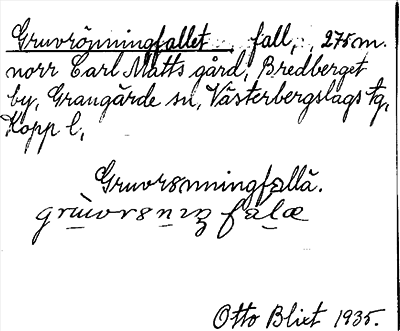 Gruvrönningfallet, fall, 275 m.
norr Carl Matts gård, Bredberget
by, Grangärde sn, Västerbergslags tg,
Kopp l,
Gruvrönningfallä.
Otto Blixt 1935.